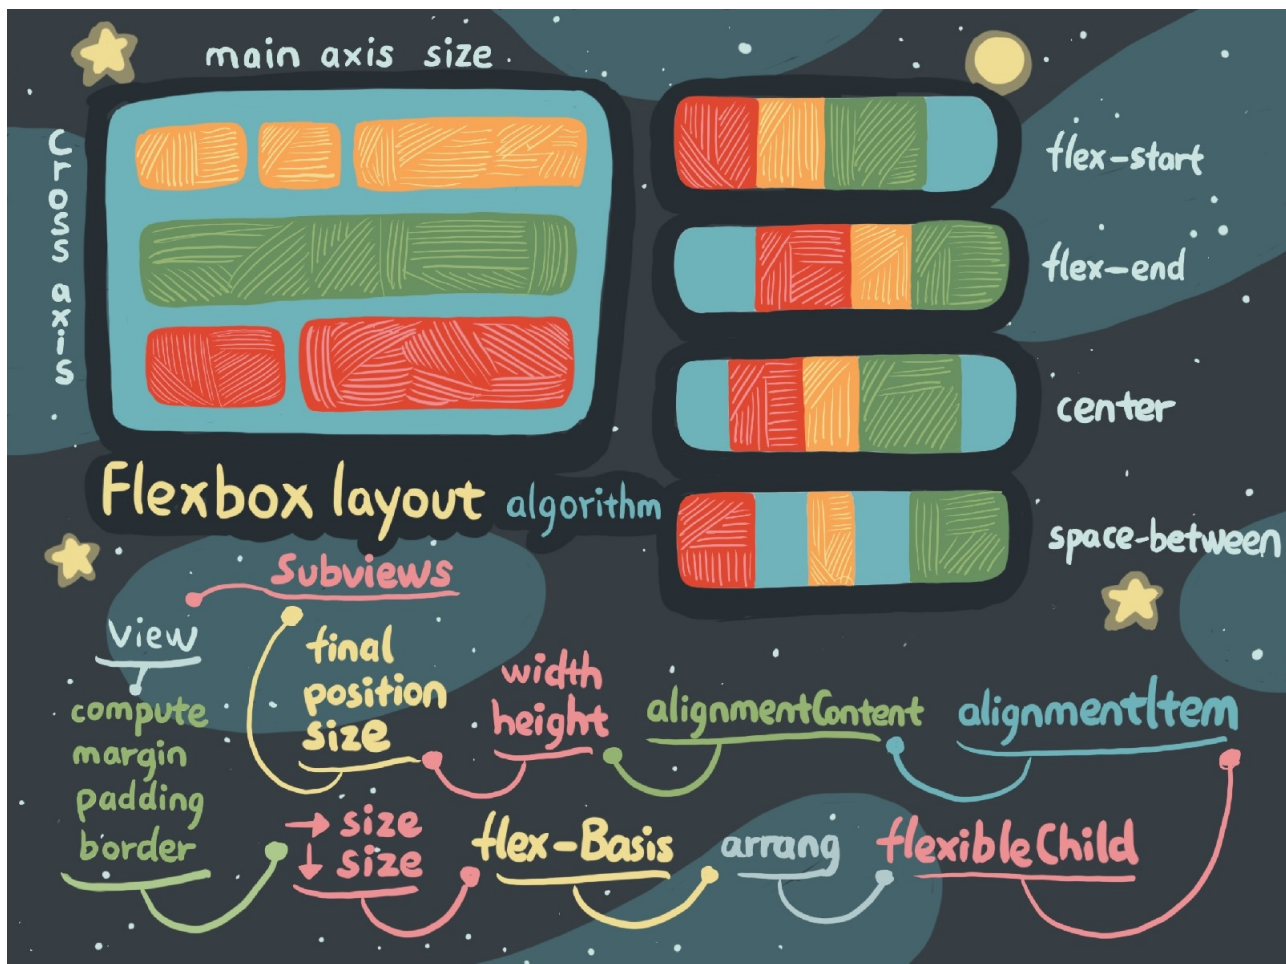 main axis size
Cross axis
flex-start
flex-end
center
space-between
Flexbox layout algorithm
Subviews
View
compute
margin
padding
border
final
position
size
width
height
alignmentContent
alignmentItem
→ size
↓ size
flex-Basis
arrang
flexibleChild